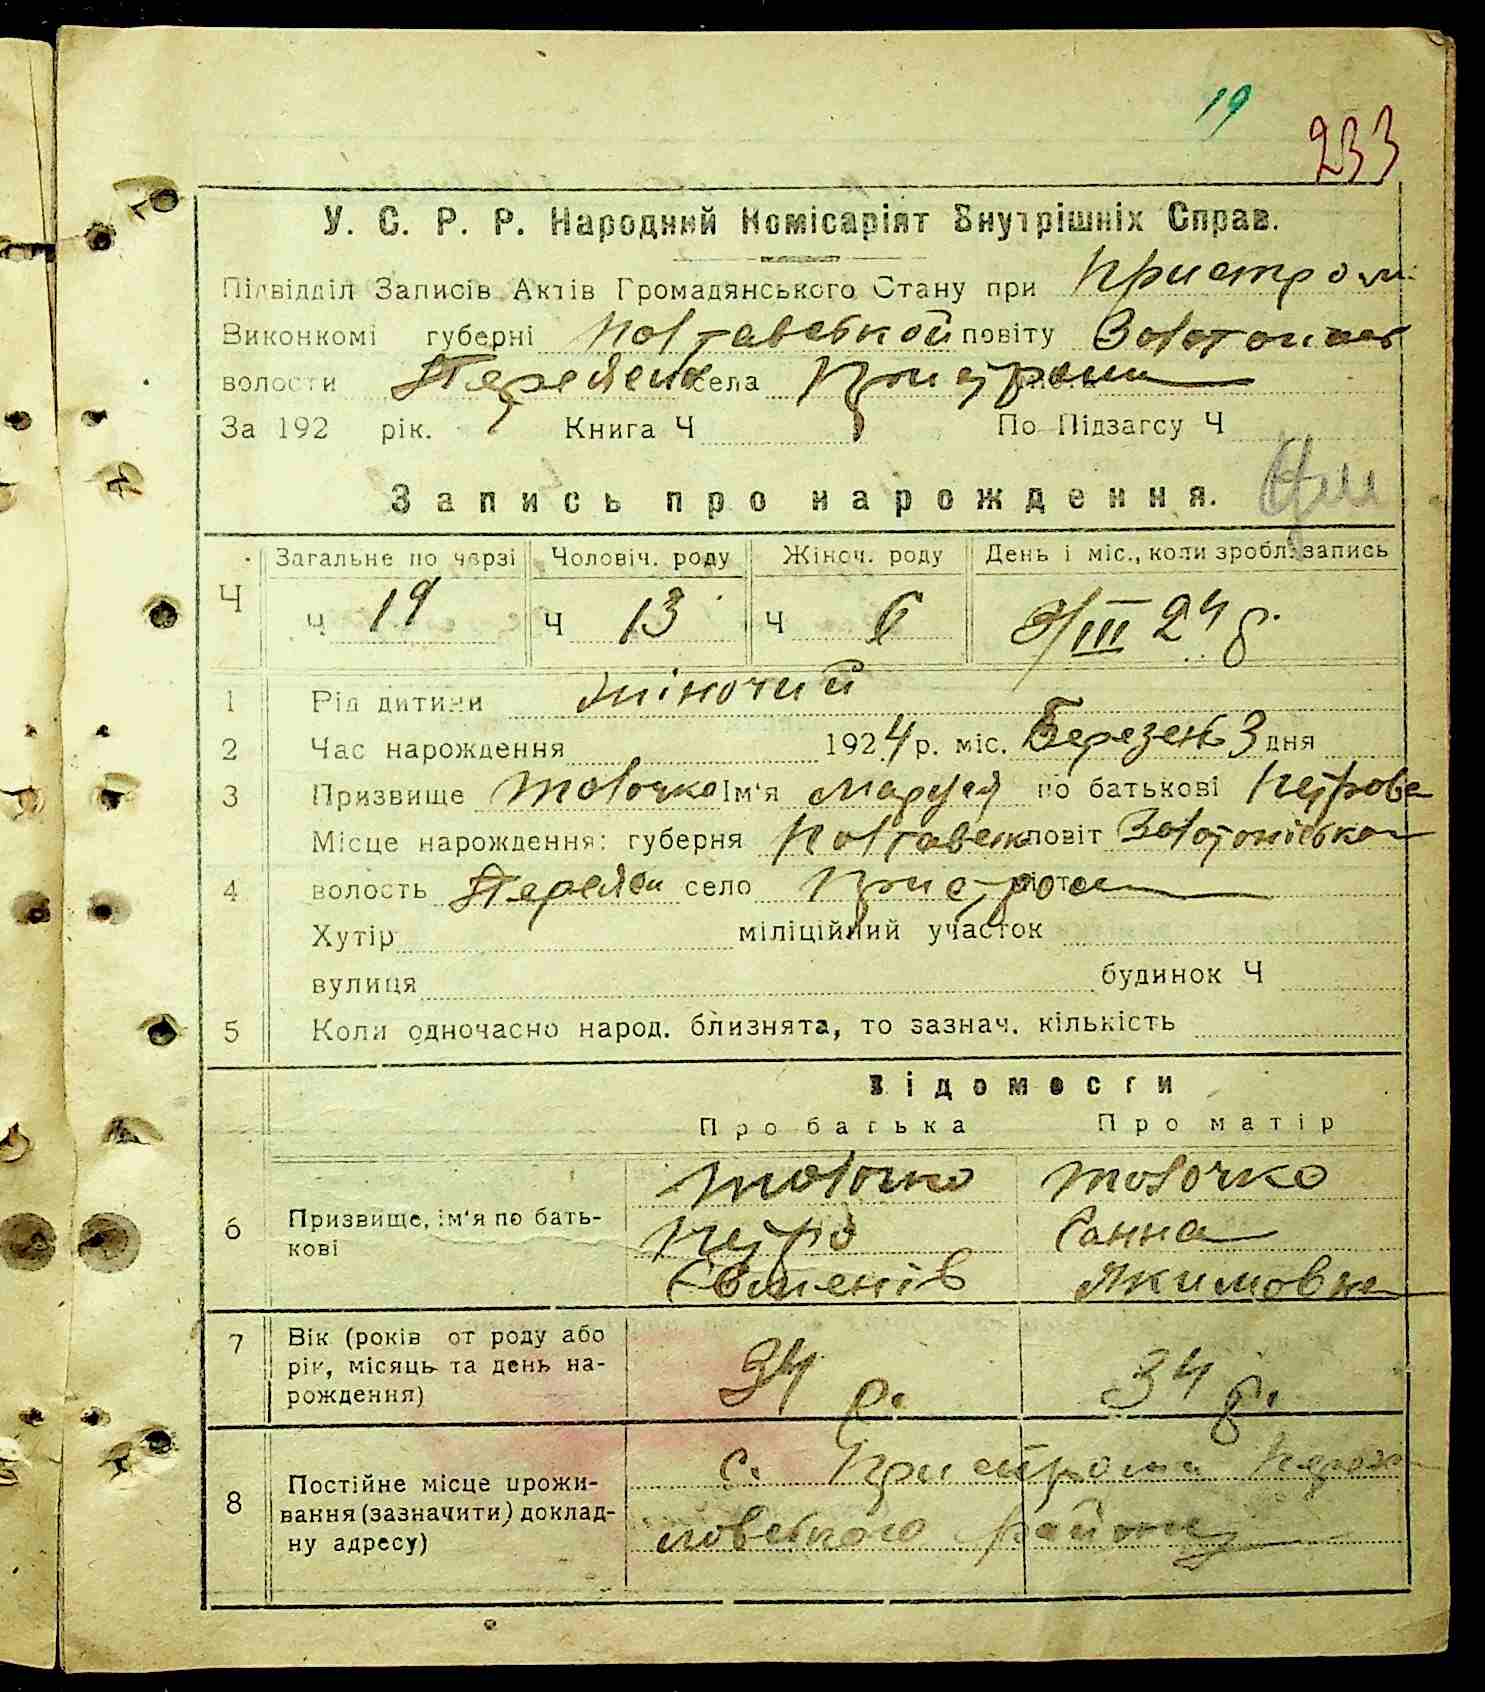 19
233
У. С. Р. Р. Народний Комісаріят Внутрішніх Справ.
Підвідділ Записів Актів Громадянського Стану при Пристром.
Виконкомі губерні Полтавської повіту Золотоніс
волости Переясл села Пристроми
За 192 рік. Книга Ч По Підзагсу Ч
Запись про народження.
Ч Загальне по черзі Чоловіч. роду Жіноч. роду День і міс., коли зробл. запись
Ч 19 Ч 13 Ч 6 8/III 24 р.
1 Рід дитини жіночий
2 Час народження 1924 р. міс. Березень 3 дня
3 Призвище Толочко Ім'я Маруся по батькові Петрова
Місце народження: губерня Полтавск повіт Золотонісько
4 волость Переясл село Пристроми
Хутір міліційний участок
вулиця будинок Ч
5 Коли одночасно народ. близнята, то зазнач. кількість
Відомости
Про батька Про матір
6 Призвище, ім'я по батькові
Толочко Толочко
Петро Ганна
Семенів Якимовна
7 Вік (років от роду або рік, місяць та день народження)
34 р. 34 р.
8 Постійне місце прожи-
вання (зазначити) доклад-
ну адресу)
с. Пристроми Переяс
ловського району